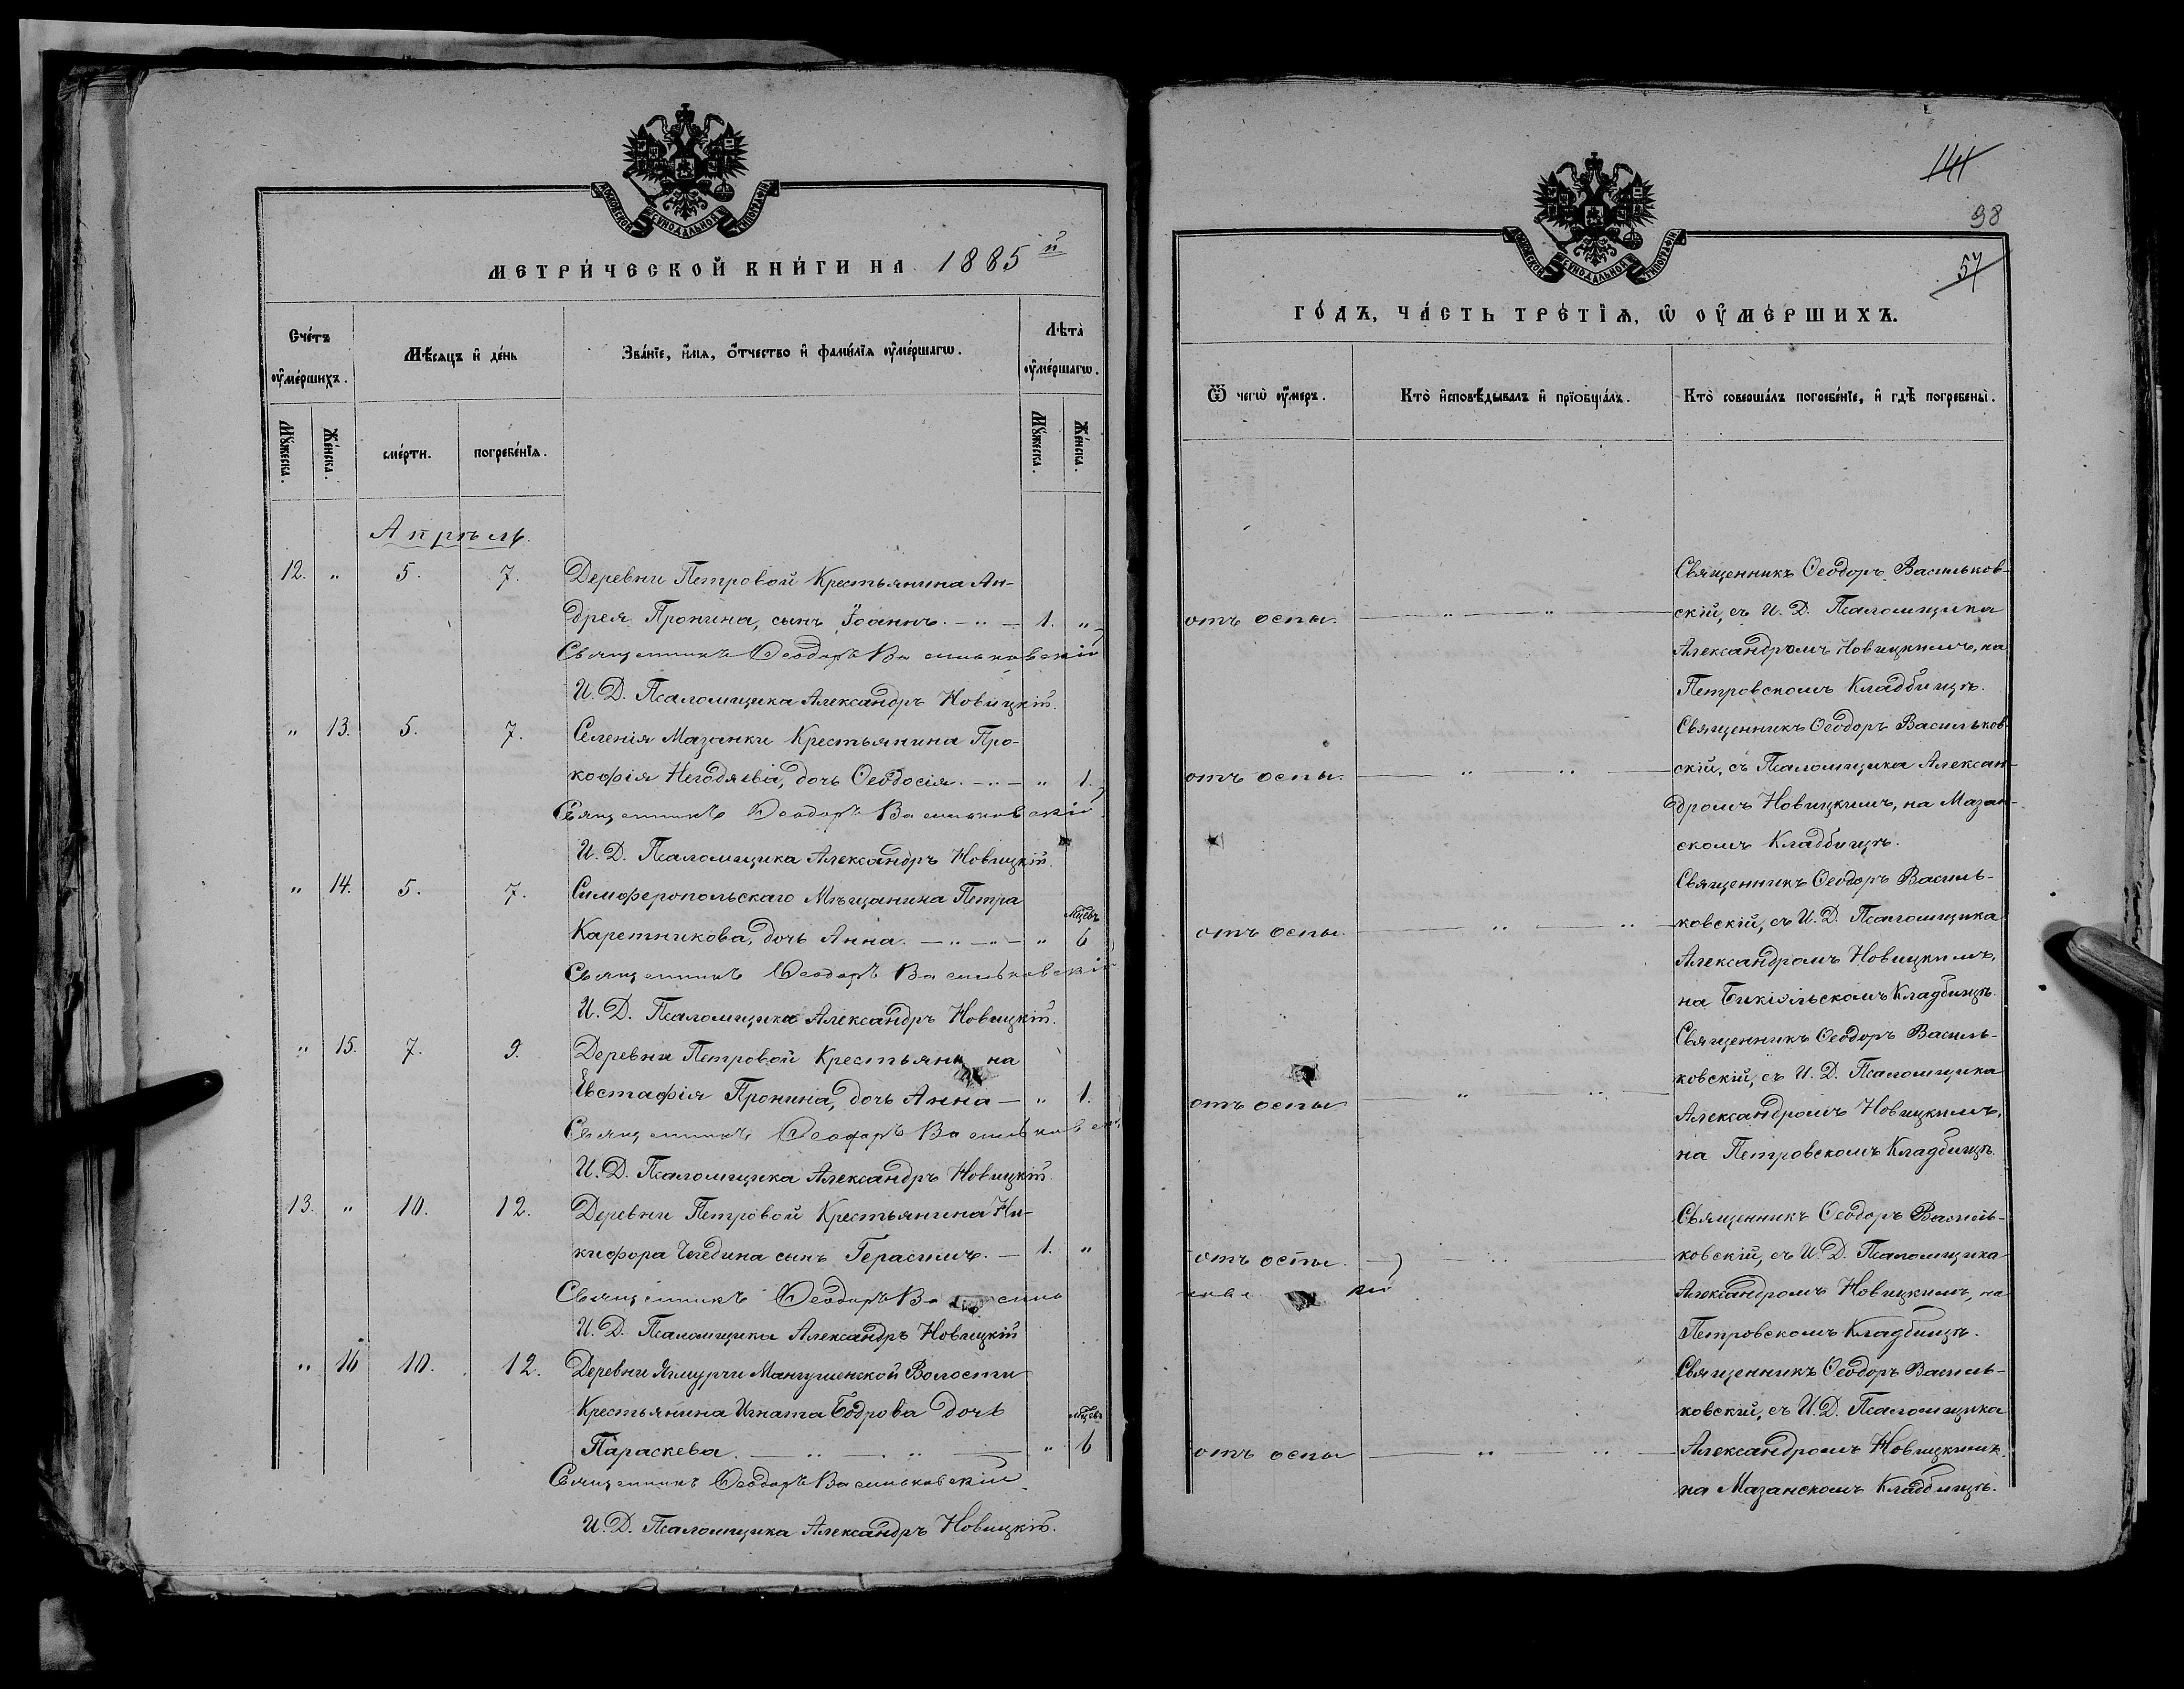 МОСКОВСКОЙ СѴНОДАЛЬНОЙ ТИПОГРАФІИ
МЕТРИ́ЧЕСКОЙ КНИ́ГИ НА 1885й
Сче́тъ оу҆ме́ршихъ.
Мѣ́сяцъ и҆ де́нь
Зва́нїе, и҆́мѧ, ѻ҆́тчество и҆ фами́лїѧ оу҆ме́ршагѡ.
Лѣ́та оу҆ме́ршагѡ.
Мꙋ́жеска.
Же́нска.
сме́рти.
погребе́нїѧ.
Мꙋ́жеска.
Же́нска.
Апрѣль.
12. " 5. 7. Деревни Петровой Крестьянина Ан-
дрея Пронина, сынъ Іоаннъ. 1. "
Священникъ Ѳеодоръ Васильковскій
И. Д. Псаломщика Александръ Новицкій.
" 13. 5. 7. Селенія Мазанки Крестьянина Про-
кофія Негодяева, дочь Ѳеодосія. " 1.
Священникъ Ѳеодоръ Васильковскій
И. Д. Псаломщика Александръ Новицкій.
" 14. 5. 7. Симферопольскаго Мѣщанина Петра
Каретникова, дочь Анна. " мцевъ 6
Священникъ Ѳеодоръ Васильковскій
И. Д. Псаломщика Александръ Новицкій.
" 15. 7. 9. Деревни Петровой Крестьянина
Евстафія Пронина, дочь Анна " 1.
Священникъ Ѳеодоръ Васильковскі
И. Д. Псаломщика Александръ Новицкій.
13. " 10. 12. Деревни Петровой Крестьянина Ни-
кифора сынъ Герасимъ. 1. "
Священникъ Ѳеодоръ Василь
И. Д. Псаломщика Александръ Новицкій
" 16 10. 12. Деревни Мангушенской Волости
Крестьянина Игната Бодрова дочь
Параскева. " мцевъ 6
Священникъ Ѳеодоръ Васильковскій
И. Д. Псаломщика Александръ Новицкій.
141
98
57
МОСКОВСКОЙ СѴНОДАЛЬНОЙ ТИПОГРАФІИ
ГО́ДЪ, ЧА́СТЬ ТРЕ́ТЇѦ, Ѡ҆ ОУ҆МЕ́РШИХЪ.
Ѿ чегѡ̀ оу҆́меръ.
Кто̀ и҆сповѣ́дывалъ и҆ прїобща́лъ.
Кто̀ соверша́лъ погребе́нїе, и҆ гдѣ̀ погребены̀.
Священникъ Ѳеодоръ Васильков-
отъ оспы. скій, съ И. Д. Псаломщика
Александромъ Новицкимъ, на
Петровскомъ Кладбищѣ.
Священникъ Ѳеодоръ Васильков-
отъ оспы. скій, съ Псаломщика Алексан-
дромъ Новицкимъ, на Мазан-
скомъ Кладбищѣ.
Священникъ Ѳеодоръ Василь-
отъ оспы. ковскій, съ И. Д. Псаломщика
Александромъ Новицкимъ,
на Кладбищѣ.
Священникъ Ѳеодоръ Василь-
отъ оспы ковскій, съ И. Д. Псаломщика
Александромъ Новицкимъ,
на Петровскомъ Кладбищѣ.
Священникъ Ѳеодоръ Василь-
отъ оспы. ковскій, съ И. Д. Псаломщика
ковскій Александромъ Новицкимъ, на
Петровскомъ Кладбищѣ.
Священникъ Ѳеодоръ Василь-
ковскій, съ И. Д. Псаломщика
отъ оспы Александромъ Новицкимъ.
на Мазанскомъ Кладбищѣ.